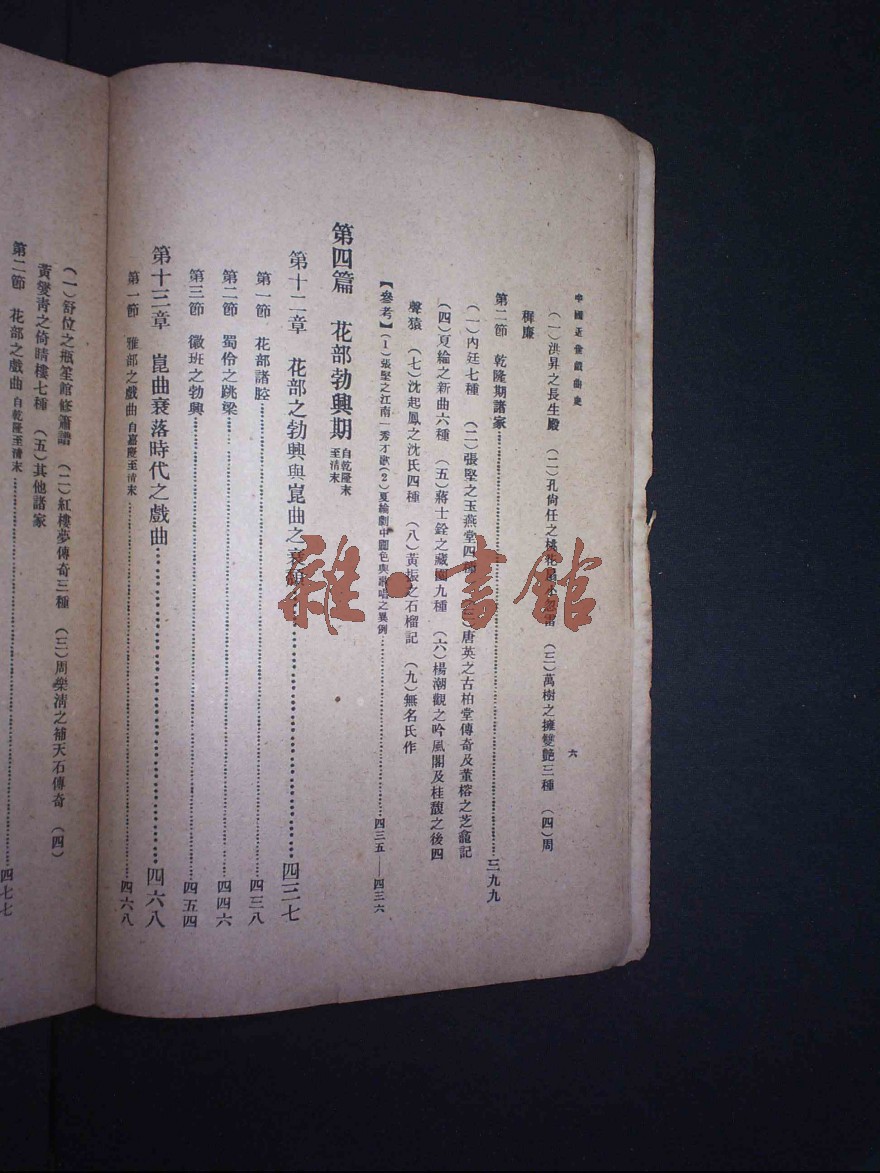 中國近世戲曲史
六
(一)洪昇之長生殿 (二)孔尙任之桃花扇小忽雷 (三)萬樹之擁雙艷三種 (四)周
穉廉
第二節 乾隆期諸家……三九九
(一)內廷七種 (二)張堅之玉燕堂四種 (三)唐英之古柏堂傳奇及董榕之芝龕記
(四)夏綸之新曲六種 (五)蔣士銓之藏園九種 (六)楊潮觀之吟風閣及桂馥之後四
聲猿 (七)沈起鳳之沈氏四種 (八)黃振之石榴記 (九)無名氏作
【參考】(1)張堅之江南一秀才歌(2)夏綸劇中腳色與歌唱之異例……四三五—四三六
第四篇 花部勃興期 自乾隆末至清末
第十二章 花部之勃興與崑曲之衰頹……四三七
第一節 花部諸腔……四三八
第二節 蜀伶之跳梁……四四六
第三節 徽班之勃興……四五四
第十三章 崑曲衰落時代之戲曲……四六八
第一節 雅部之戲曲 自嘉慶至清末……四六八
(一)舒位之瓶笙館修簫譜 (二)紅樓夢傳奇三種 (三)周樂淸之補天石傳奇 (四)
黃燮靑之倚晴樓七種 (五)其他諸家
第二節 花部之戲曲 自乾隆至清末……四七七
雜·書館